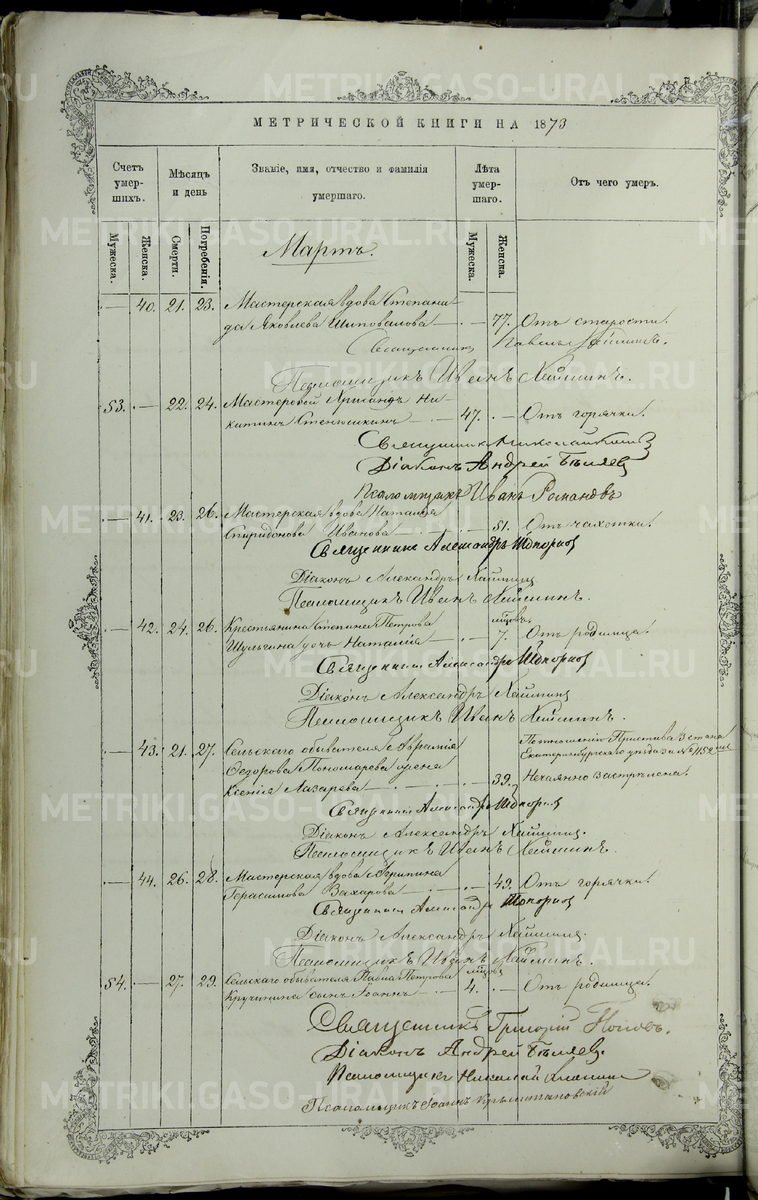 METRIKI.GASO-URAL.RU
МЕТРИЧЕСКОЙ КНИГИ НА 1873
Счетъ умер- шихъ.
Мѣсяцъ и день
Званіе, имя, отчество и фамилія умершаго.
Лѣта умер- шаго.
Отъ чего умеръ.
Мужеска.
Женска.
Смерти.
Погребенія.
Мужеска.
Женска.
Мартъ.
— 40. 21. 23. Мастерская вдова Степани-
да Яковлева Шиповалова — . — 77. Отъ старости.
Священникъ Павелъ
Псаломщикъ Иванъ
53. — 22. 24. Мастеровой Ни-
китинъ — 47. — Отъ горячки.
Священникъ Николай
Діаконъ Андрей Бѣляев
Псаломщикъ Иванъ Романовъ
— 41. 23. 26. Мастерская вдова Наталья
Спиридонова Иванова — 51. Отъ чахотки.
Священникъ Александръ Топорков
Діаконъ Александръ
Псаломщикъ Иванъ
— 42. 24. 26. Крестьянина Степана Петрова мѣсяц.
Шульгина дочь Наталія — 7. Отъ родимца.
Священникъ Александръ Топорков
Діаконъ Александръ
Псаломщикъ Иванъ
— 43. 21. 27. Сельскаго обывателя Авраамія По отношенію Пристава 3 стана
Федорова Пономарева жена Екатеринбургскаго уѣзда за № 1152
Ксенія Лазарева — 39. Нечаянно застрѣлена.
Священникъ Александръ Топорков
Діаконъ Александръ
Псаломщикъ Иванъ
— 44. 26. 28. Мастерская вдова Агрипина
Герасимова Захарова — 49. Отъ горячки.
Священникъ Александръ Топорков
Діаконъ Александръ
Псаломщикъ Иванъ
54. — 27. 29. Сельскаго обывателя Павла Петрова мѣсяц.
Кручинина сынъ Іоаннъ — 4. — Отъ родимца.
Священникъ Григорій Поповъ.
Діаконъ Андрей Бѣляев.
Псаломщикъ Николай
Псаломщикъ Іоаннъ